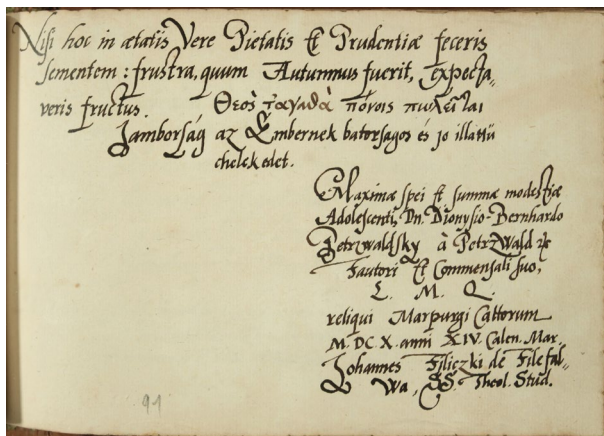 Nisi hoc in ætatis Vere Pietatis Et Prudentiæ feceris
sementem: frustra, quum Autumnus fuerit, expecta„
veris fructus. Θεοὶ τἀγαθὰ πόνοις πωλεῖται
Jamborság az Embernek batorsagos és jo illattú
chelekedet.
Maximæ spei et summæ modestiæ
Adolescenti, Dn. Dionysio-Bernhardo
Petrzwaldsky à PetrzWald &c
Fautori Et Commensali suo,
L. M. Q.
reliqui Marpurgi Cattorum
M. DC X. anni XIV. Calen. Mar.
Johannes Filiczki de Filefal„
Wa, SS. Theol. Stud.
91